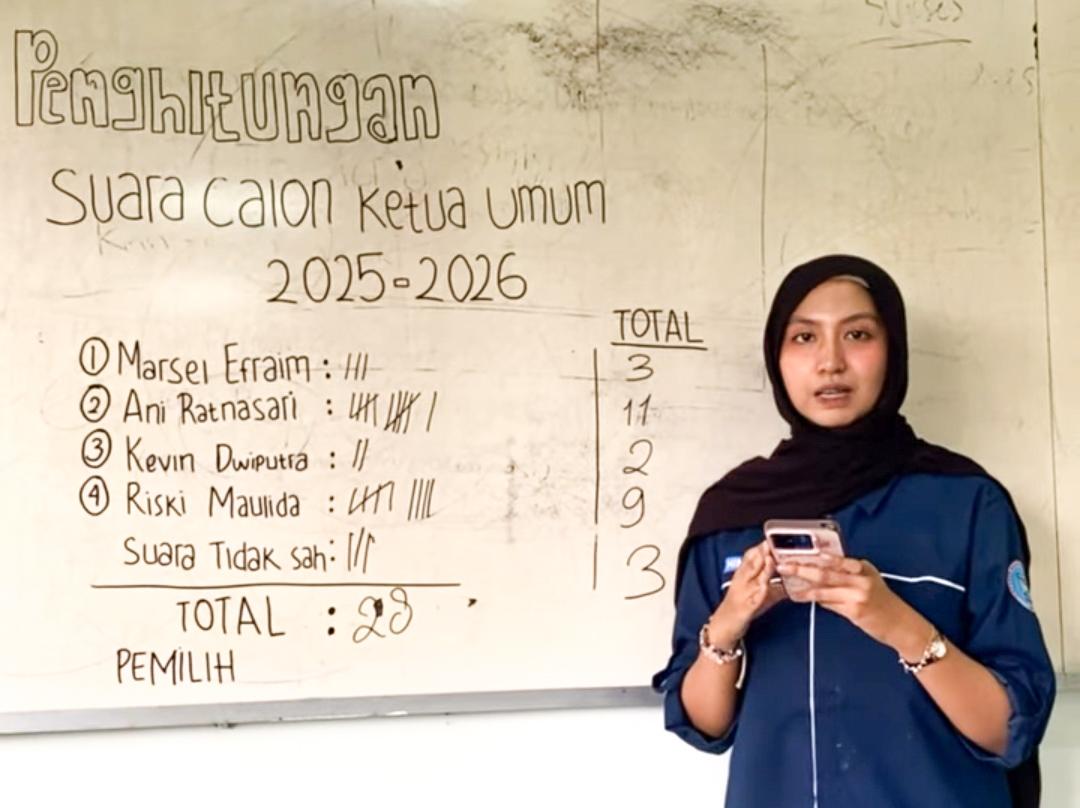 Penghitungan
Suara Calon Ketua Umum
2025-2026
TOTAL
① Marsel Efraim : 3
② Ani Ratnasari : 11
③ Kevin Dwiputra : 2
④ Riski Maulida : 9
Suara Tidak sah: 3
TOTAL :
PEMILIH